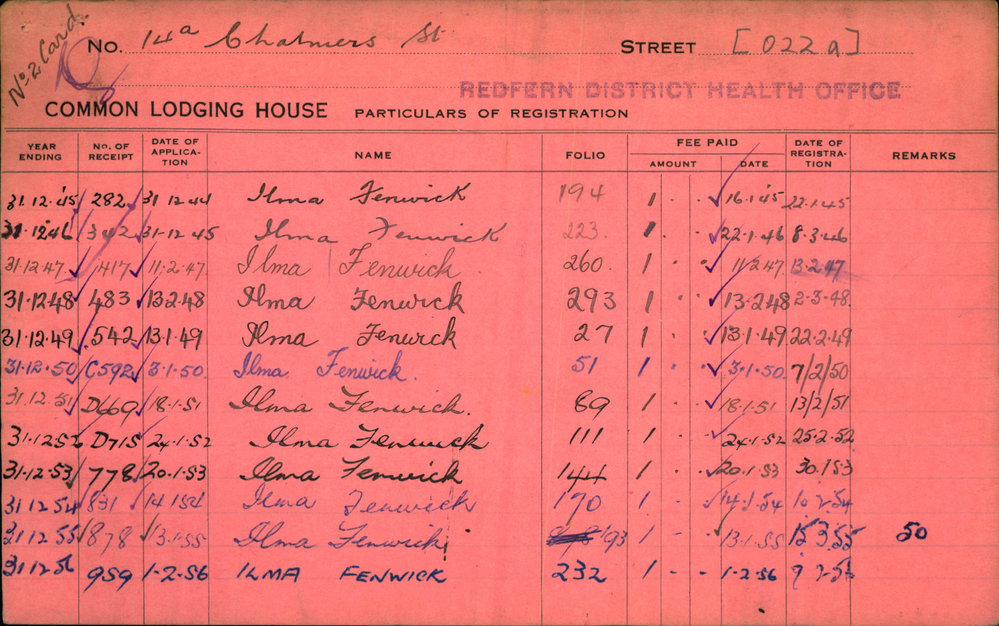 No. 2 Card
No. 14a Chalmers St STREET [022a]
REDFERN DISTRICT HEALTH OFFICE
COMMON LODGING HOUSE PARTICULARS OF REGISTRATION
YEAR ENDING NO. OF RECEIPT DATE OF APPLICATION NAME FOLIO FEE PAID AMOUNT DATE DATE OF REGISTRATION REMARKS
31.12.45 282 31 12 44 Ilma Fenwick 194 1 . . 16.1.45 22.1.45
31.12.46 342 31.12.45 Ilma Fenwick 223. 1 . . 22.1.46 8.3.46
31.12.47 417 11.2.47 Ilma Fenwick 260. 1 . . 11.2.47 13.2.47
31.12.48 483 13.2.48 Ilma Fenwick 293 1 . . 13.2.48 2.3.48.
31.12.49 542 13.1.49 Ilma Fenwick 27 1 . . 13.1.49 22.2.49
31.12.50 C592 3.1.50. Ilma Fenwick. 51 1 . . 3.1.50. 7/2/50
31.12.51 D669 18.1.51 Ilma Fenwick. 89 1 . . 18.1.51 13/2/51
31.12.52 D715 24.1.52 Ilma Fenwick 111 1 . . 24.1.52 25.2.52
31.12.53 778 20.1.53 Ilma Fenwick 144 1 . . 20.1.53 30.1.53
31.12.54 831 14.1.54 Ilma Fenwick 170 1 . . 14.1.54
31.12.55 878 13.1.55 Ilma Fenwick 193 1 - - 13.1.55 15.3.55 50
31.12.56 959 1.2.56 ILMA FENWICK 232 1 - - 1.2.56